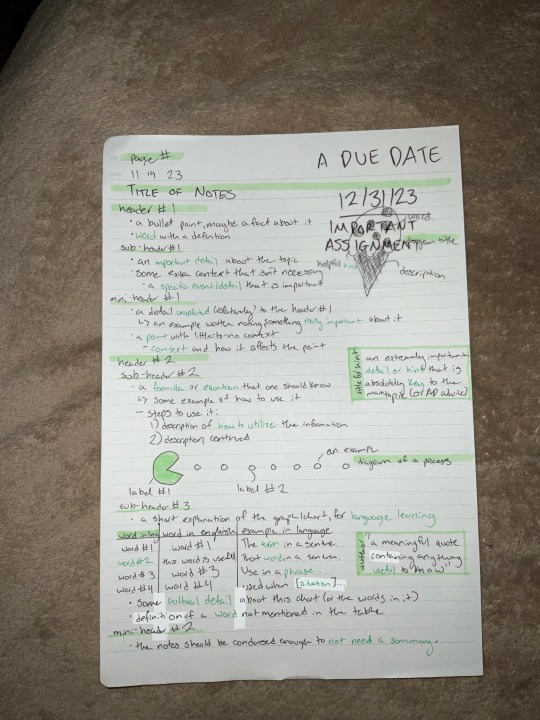 page #
A DUE DATE
11 19 23
TITLE OF NOTES
12/31/23
header #1
IMPORTANT
ASSIGNMENT
word
• a bullet point, maybe a fact about it
• word with a definition
sub-header #1
title
• an important detail about the topic
helpful hint
• some extra context that isn't necessary
description
- a specific event/detail that is important
mini-header #1
• a detail unrelated (relatively) to the header #1
↳ an example worth noting something really important about it
• a point with little-to-no context
- context and how it affects the point
header #2
sub-header #2
title for hint
an extremely important
detail or hint that is
absolutely key to the
main topic (or AP advice)
• a formula or equation that one should know
↳ some example of how to use it
- steps to use it:
1) description of how to utilize the information
2) description continued
an example
diagram of a process
label #1
label #2
sub-header #3
• a short explanation of the graph/chart, for language learning
word in lng
word in english
example in language
word #1
word #1
The term in a sentence.
word #2
this word is useful
That word in a sentence.
word #3
word #3
Use in a phrase...
word #4
word #4
used when [situation]...
author
"a meaningful quote
containing anything
useful to know"
• Some cultural detail about this chart (or the words in it)
• definition of a word not mentioned in the table
mini-header #2
• the notes should be condensed enough to not need a summary.